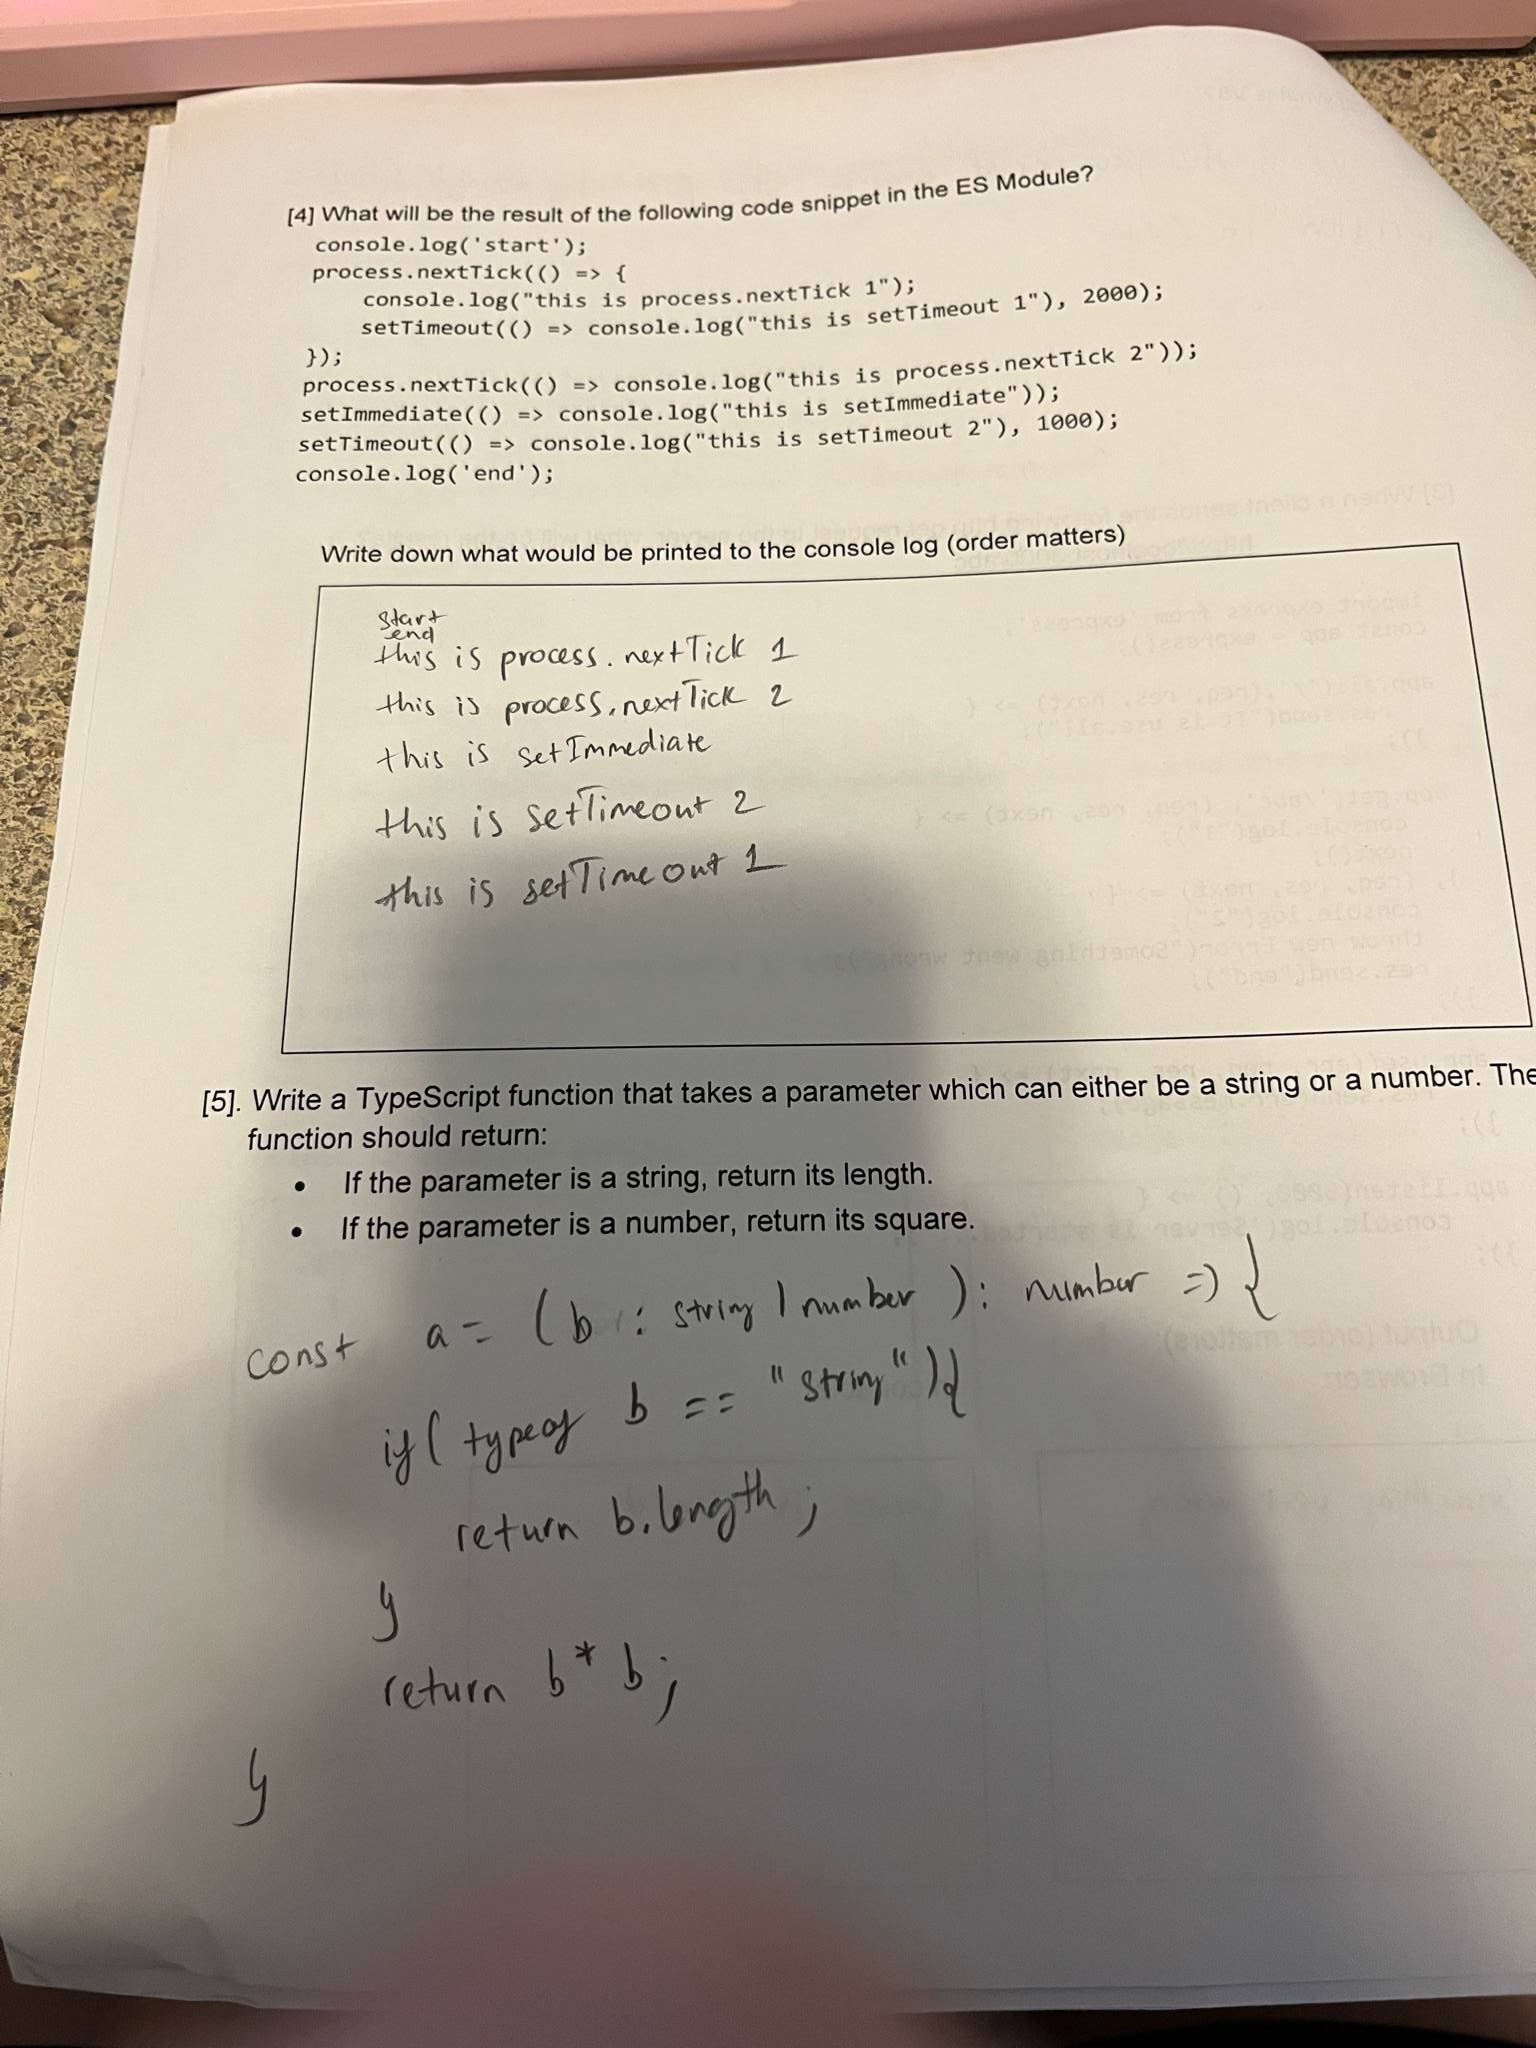 [4] What will be the result of the following code snippet in the ES Module?
console.log('start');
process.nextTick(() => {
console.log("this is process.nextTick 1");
setTimeout(() => console.log("this is setTimeout 1"), 2000);
});
process.nextTick(() => console.log("this is process.nextTick 2"));
setImmediate(() => console.log("this is setImmediate"));
setTimeout(() => console.log("this is setTimeout 2"), 1000);
console.log('end');
Write down what would be printed to the console log (order matters)
start
end
this is process.nextTick 1
this is process.nextTick 2
this is setImmediate
this is setTimeout 2
this is setTimeout 1
[5]. Write a TypeScript function that takes a parameter which can either be a string or a number. The
function should return:
• If the parameter is a string, return its length.
• If the parameter is a number, return its square.
const a = (b : string | number ): number => {
if( typeof b == "string" ){
return b.length;
}
return b * b;
}